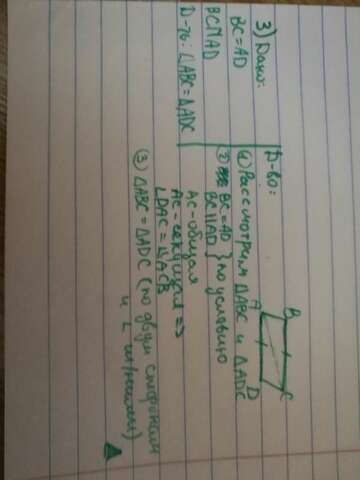 3) Дано:
BC=AD
BC∥AD
Д-ть: ∟ABC=ΔADC
Д-во:
B
A
C
D
① Рассмотрим ΔABC и ΔADC
② BC=AD } по условию
BC∥AD
AC-общая
AC-секущая =>
∠DAC=∠ACB
③ ΔABC=ΔADC (по двум сторонам
и ∠ м/у ними)